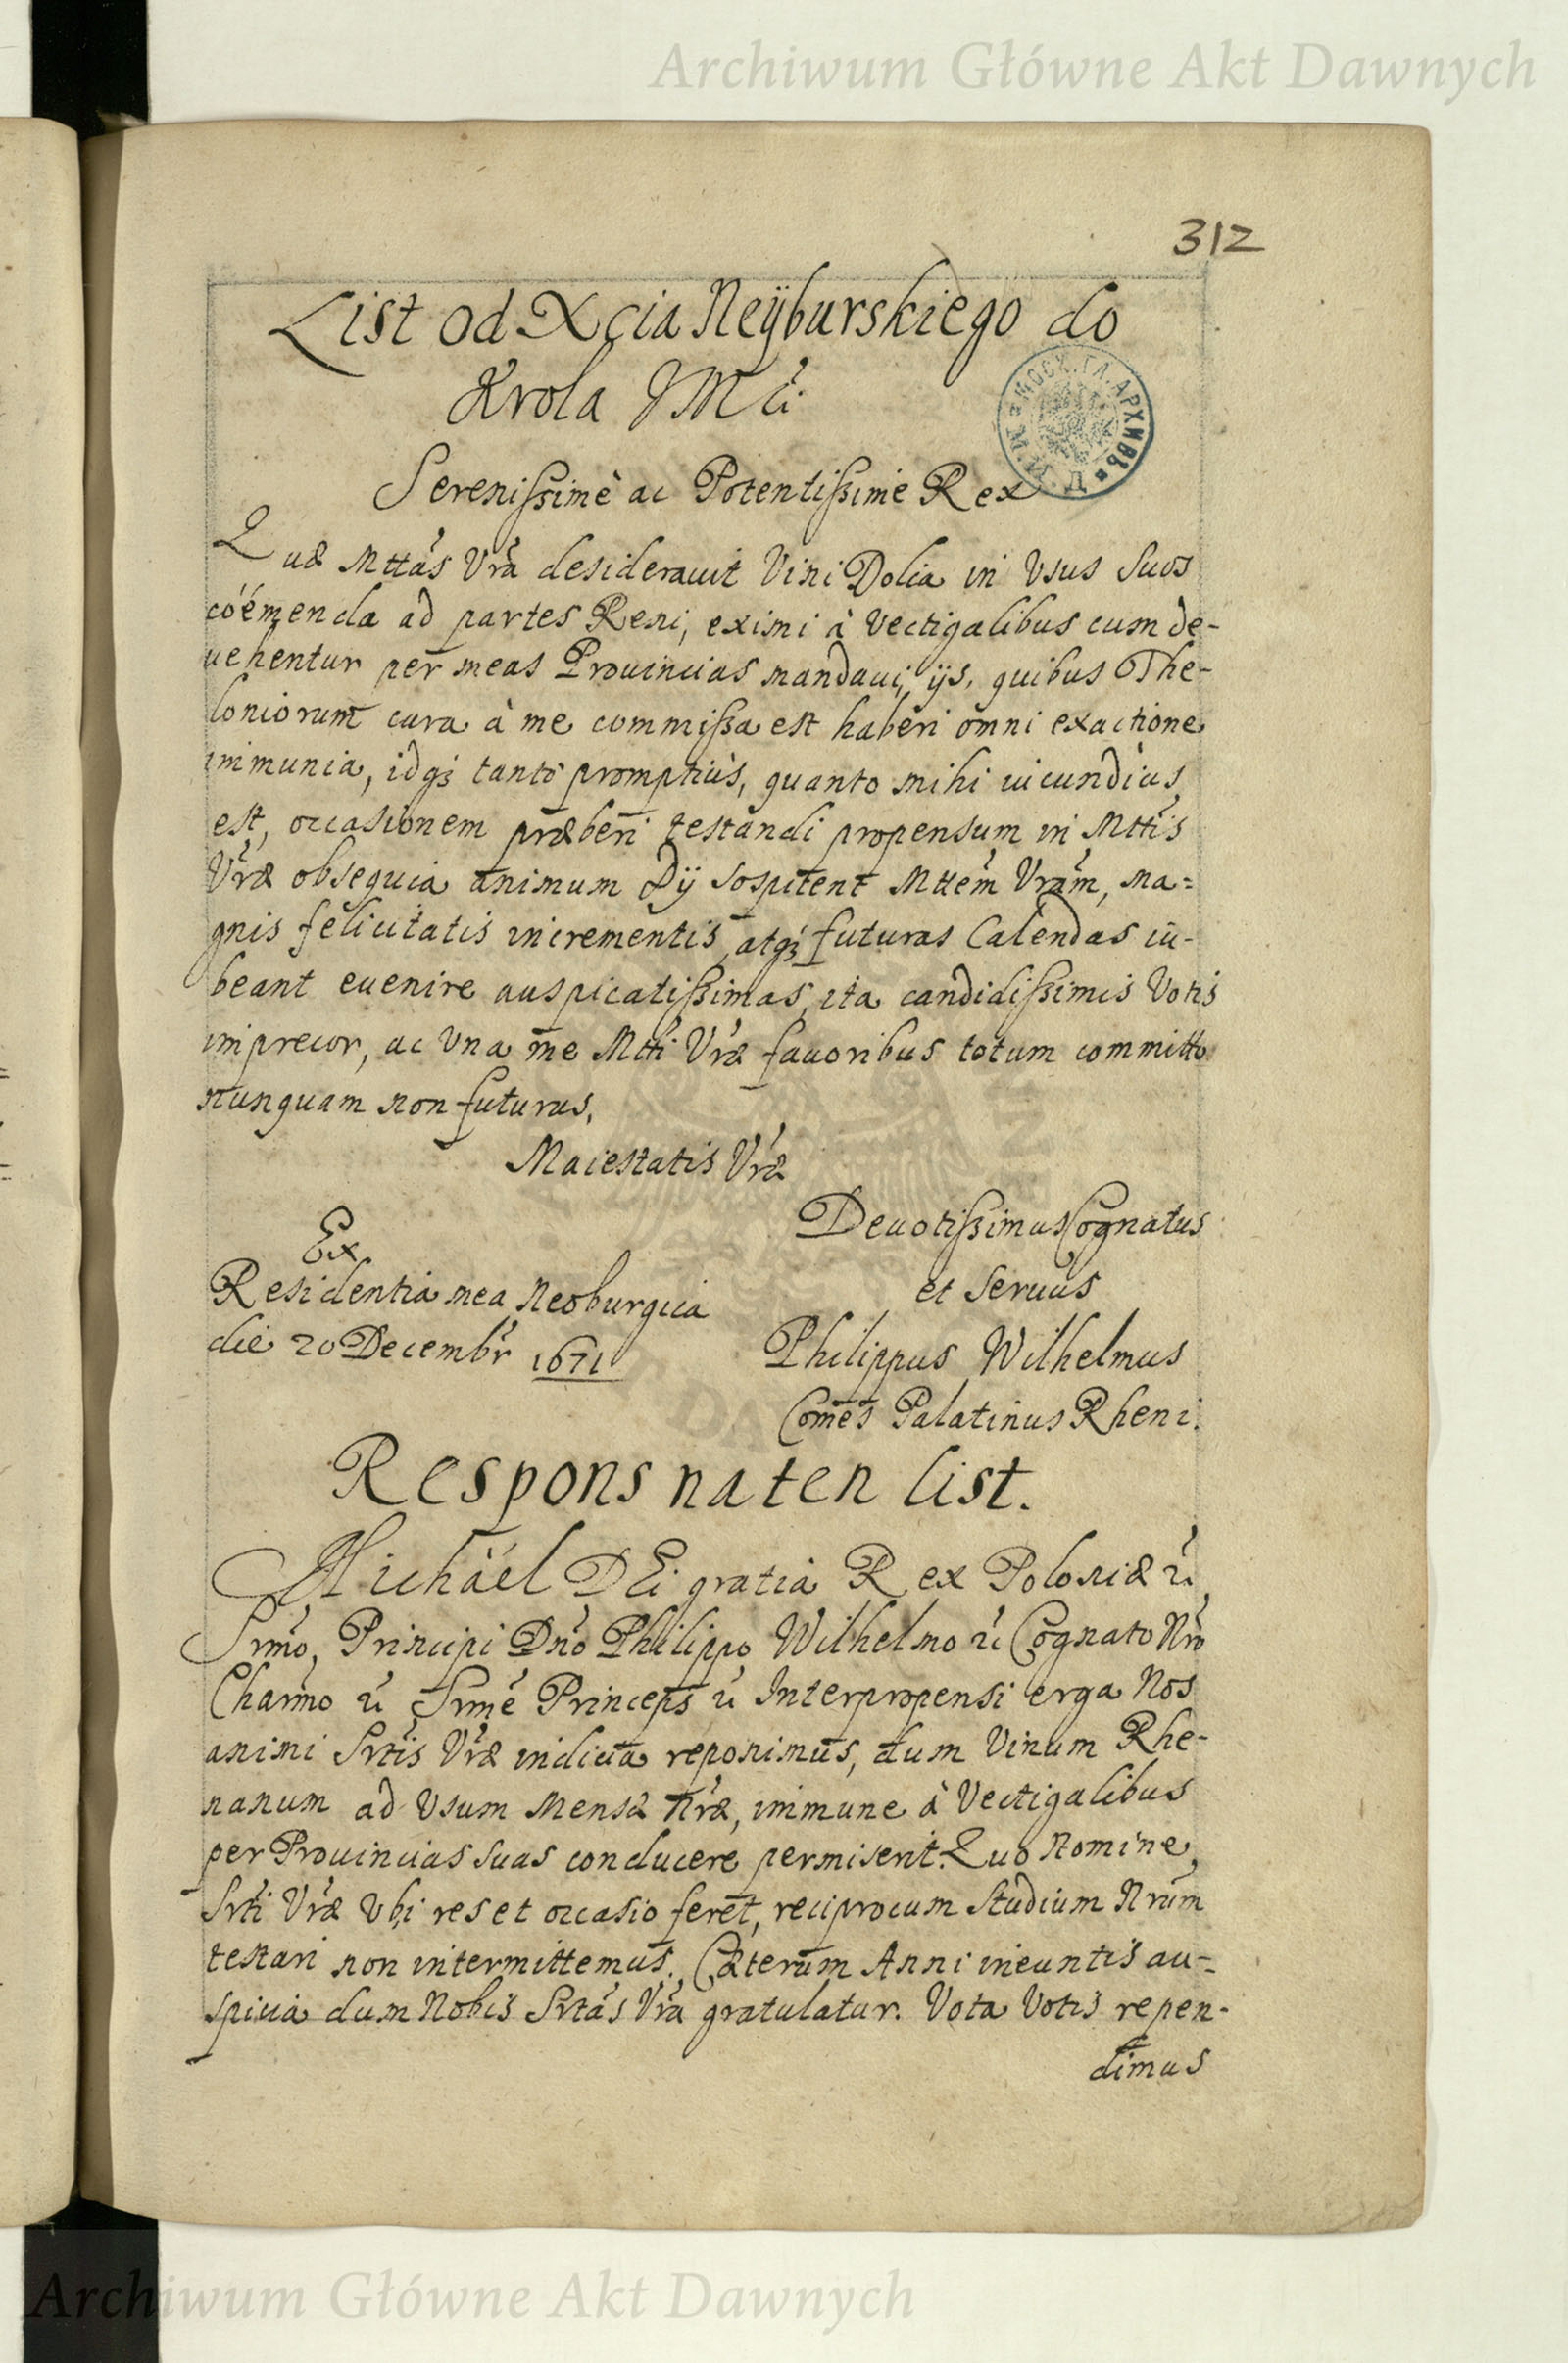 Archiwum Główne Akt Dawnych
312
List od Xcia Neÿburskiego do
Krola JMći
МОСК. ГЛ. АРХИВЪ
Serenissimè ac Potentissime Rex
Quæ Mttás Vrá desiderauit Vini Dolia in Vsus Suos
coëmenda ad partes Reni, eximi à Vectigalibus cum de-
uehentur per meas Prouincias mandaui, ijs, quibus The-
loniorum cura à me commissa est haberi omni exactione
immunia, idq; tanto promptiùs, quanto mihi iucundius
est, occasionem præberi testandi propensum in Mttis
Vræ obsequia animum Dij sospitent Mttem Vram, ma=
gnis felicitatis incrementis, atq; futuras Calendas iu-
beant euenire auspicatissimas, ita candidissimis Votis
imprecor, ac Vna me Mtti Vræ fauoribus totum committo
nunquam non futurus,
Maiestatis Vræ
Deuotissimus Cognatus
et Seruus
Ex
Residentia mea Neoburgica
die 20 Decembr 1671
Philippus Wilhelmus
Comes Palatinus Rheni.
Respons na ten list.
Michäel DEi gratia Rex Poloniæ rć
Srmo, Principi Dno Philippo Wilhelmo rć Cognato Nro
Charmo rć Srme Princeps rć Inter propensi erga Nos
animi Srtis Vræ indicia reponimus, dum Vinum Rhe-
nanum ad Vsum Mensæ Nræ, immune à Vectigalibus
per Prouincias suas conducere permiserit. Quo Nomine
Srti Vræ Vbi res et occasio feret, reciprocum Studium Nrum
testari non intermittemus. Cæterum Anni ineuntis au-
spicia dum Nobis Srtas Vra gratulatur. Vota Votis repen-
dimus
Archiwum Główne Akt Dawnych